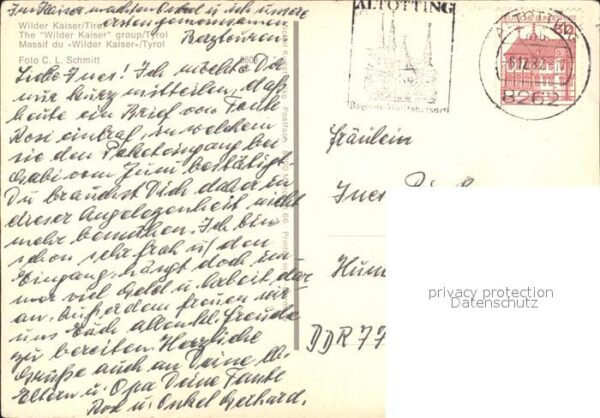 Im Kaiser machten Onkel u. ich unsere
ersten gemeinsamen
Bergtouren
Wilder Kaiser/Tirol
The "Wilder Kaiser" group/Tyrol
Massif du «Wilder Kaiser»/Tyrol
Foto C. L. Schmitt
Liebe Ines! Ich möchte Dir
nur kurz mitteilen, daß
heute ein Brief von Tante
Rosi eintraf, in welchem
sie den Paketeingang bei
Gabi vom Juni bestätigt.
Du brauchst Dich daher in
dieser Angelegenheit nicht
mehr bemühen. Ich bin
schon sehr froh ü/ den
Eingang, hängt doch im-
mer viel Geld u. Arbeit dar
an. Außerdem freuen wir
uns Euch allen kl. Freude
zu bereiten. Herzliche
Grüße auch an Deine lb.
Eltern u. Opa Deine Tante
u. Onkel Gerhard.
ALTÖTTING
Bayerns Wallfahrtsort
ALTÖTTING
8262
Fräulein
Ines
DDR 77
privacy protection
Datenschutz